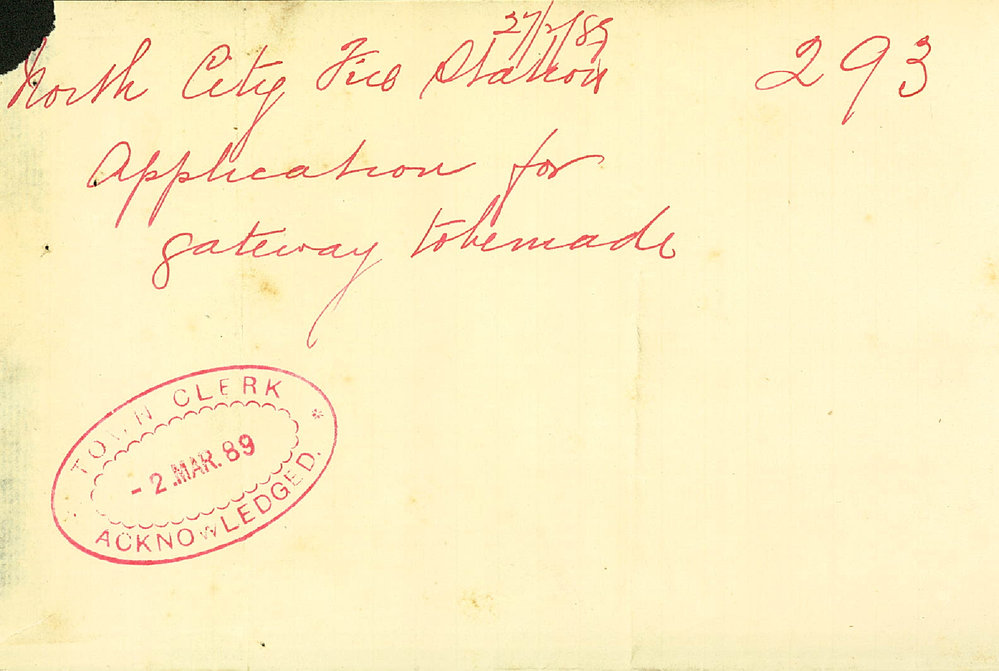 27/2/89
North City Fire Station 293
Application for
gateway to be made
TOWN CLERK
- 2. MAR. 89
ACKNOWLEDGED.